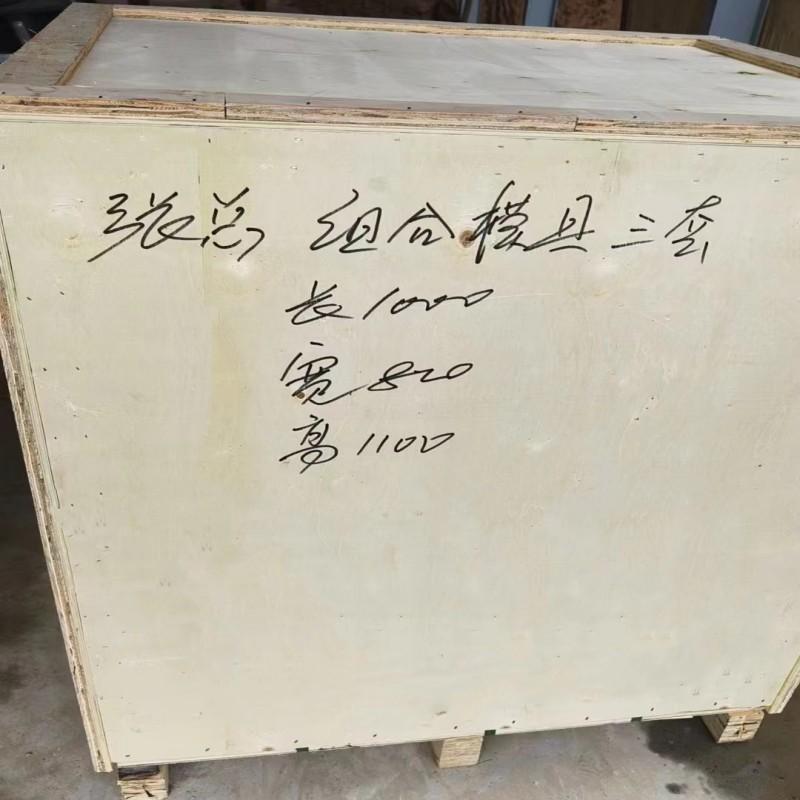 张总 组合模具三套
长1000
宽820
高1100